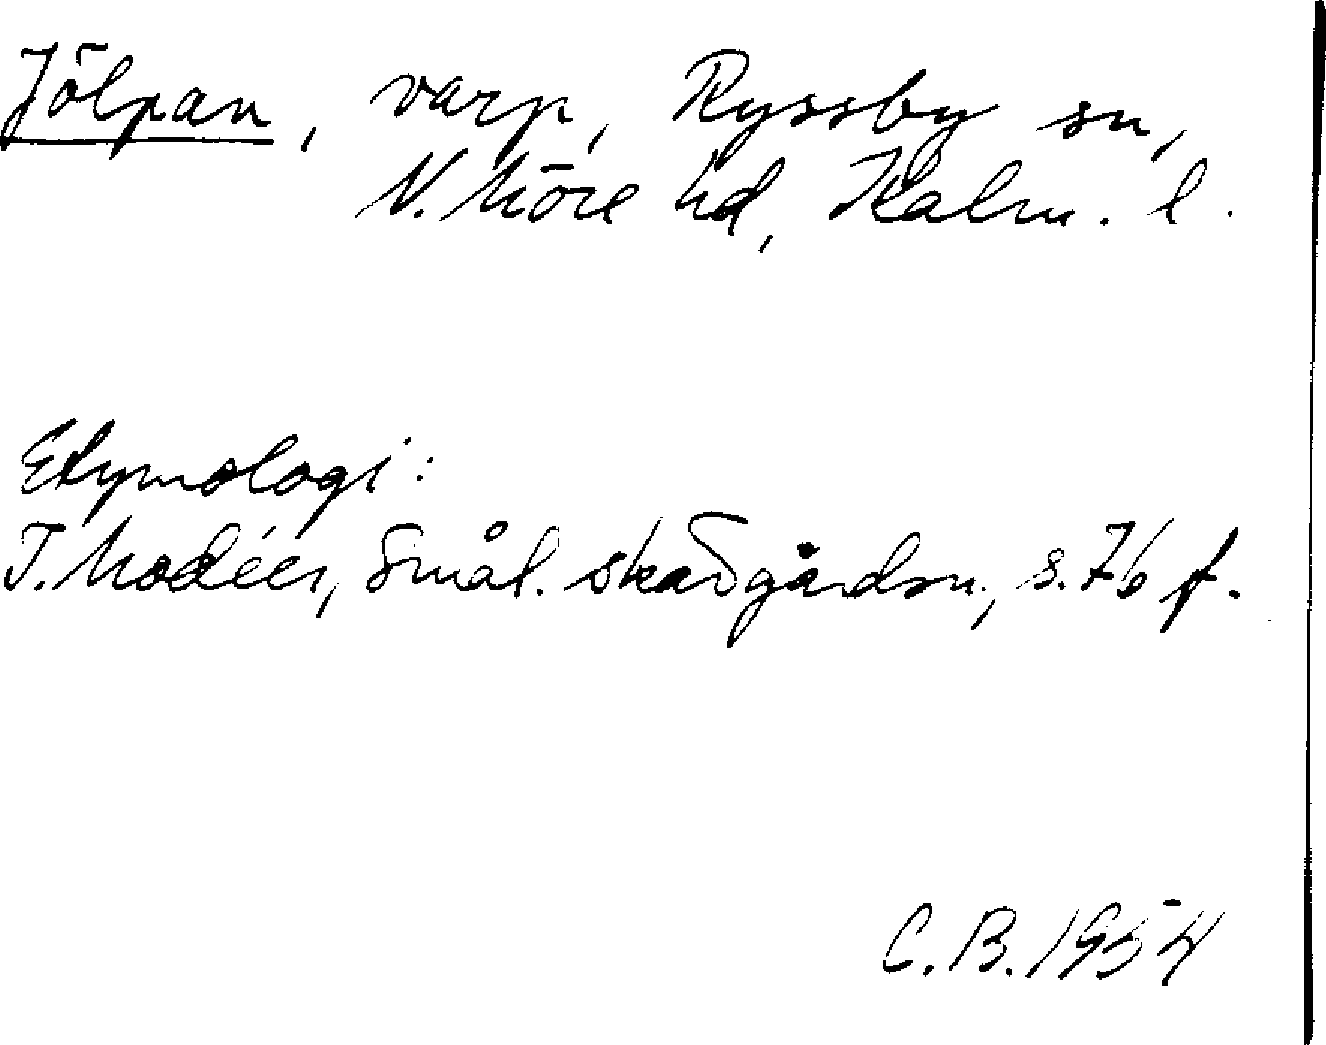 Jölpan, varp, Ryssby sn,
N. Möre hd, Kalm. l.
Etymologi:
I. Modéer, Smål. skärgårdsn., s. 76 f.
C. B. 1954